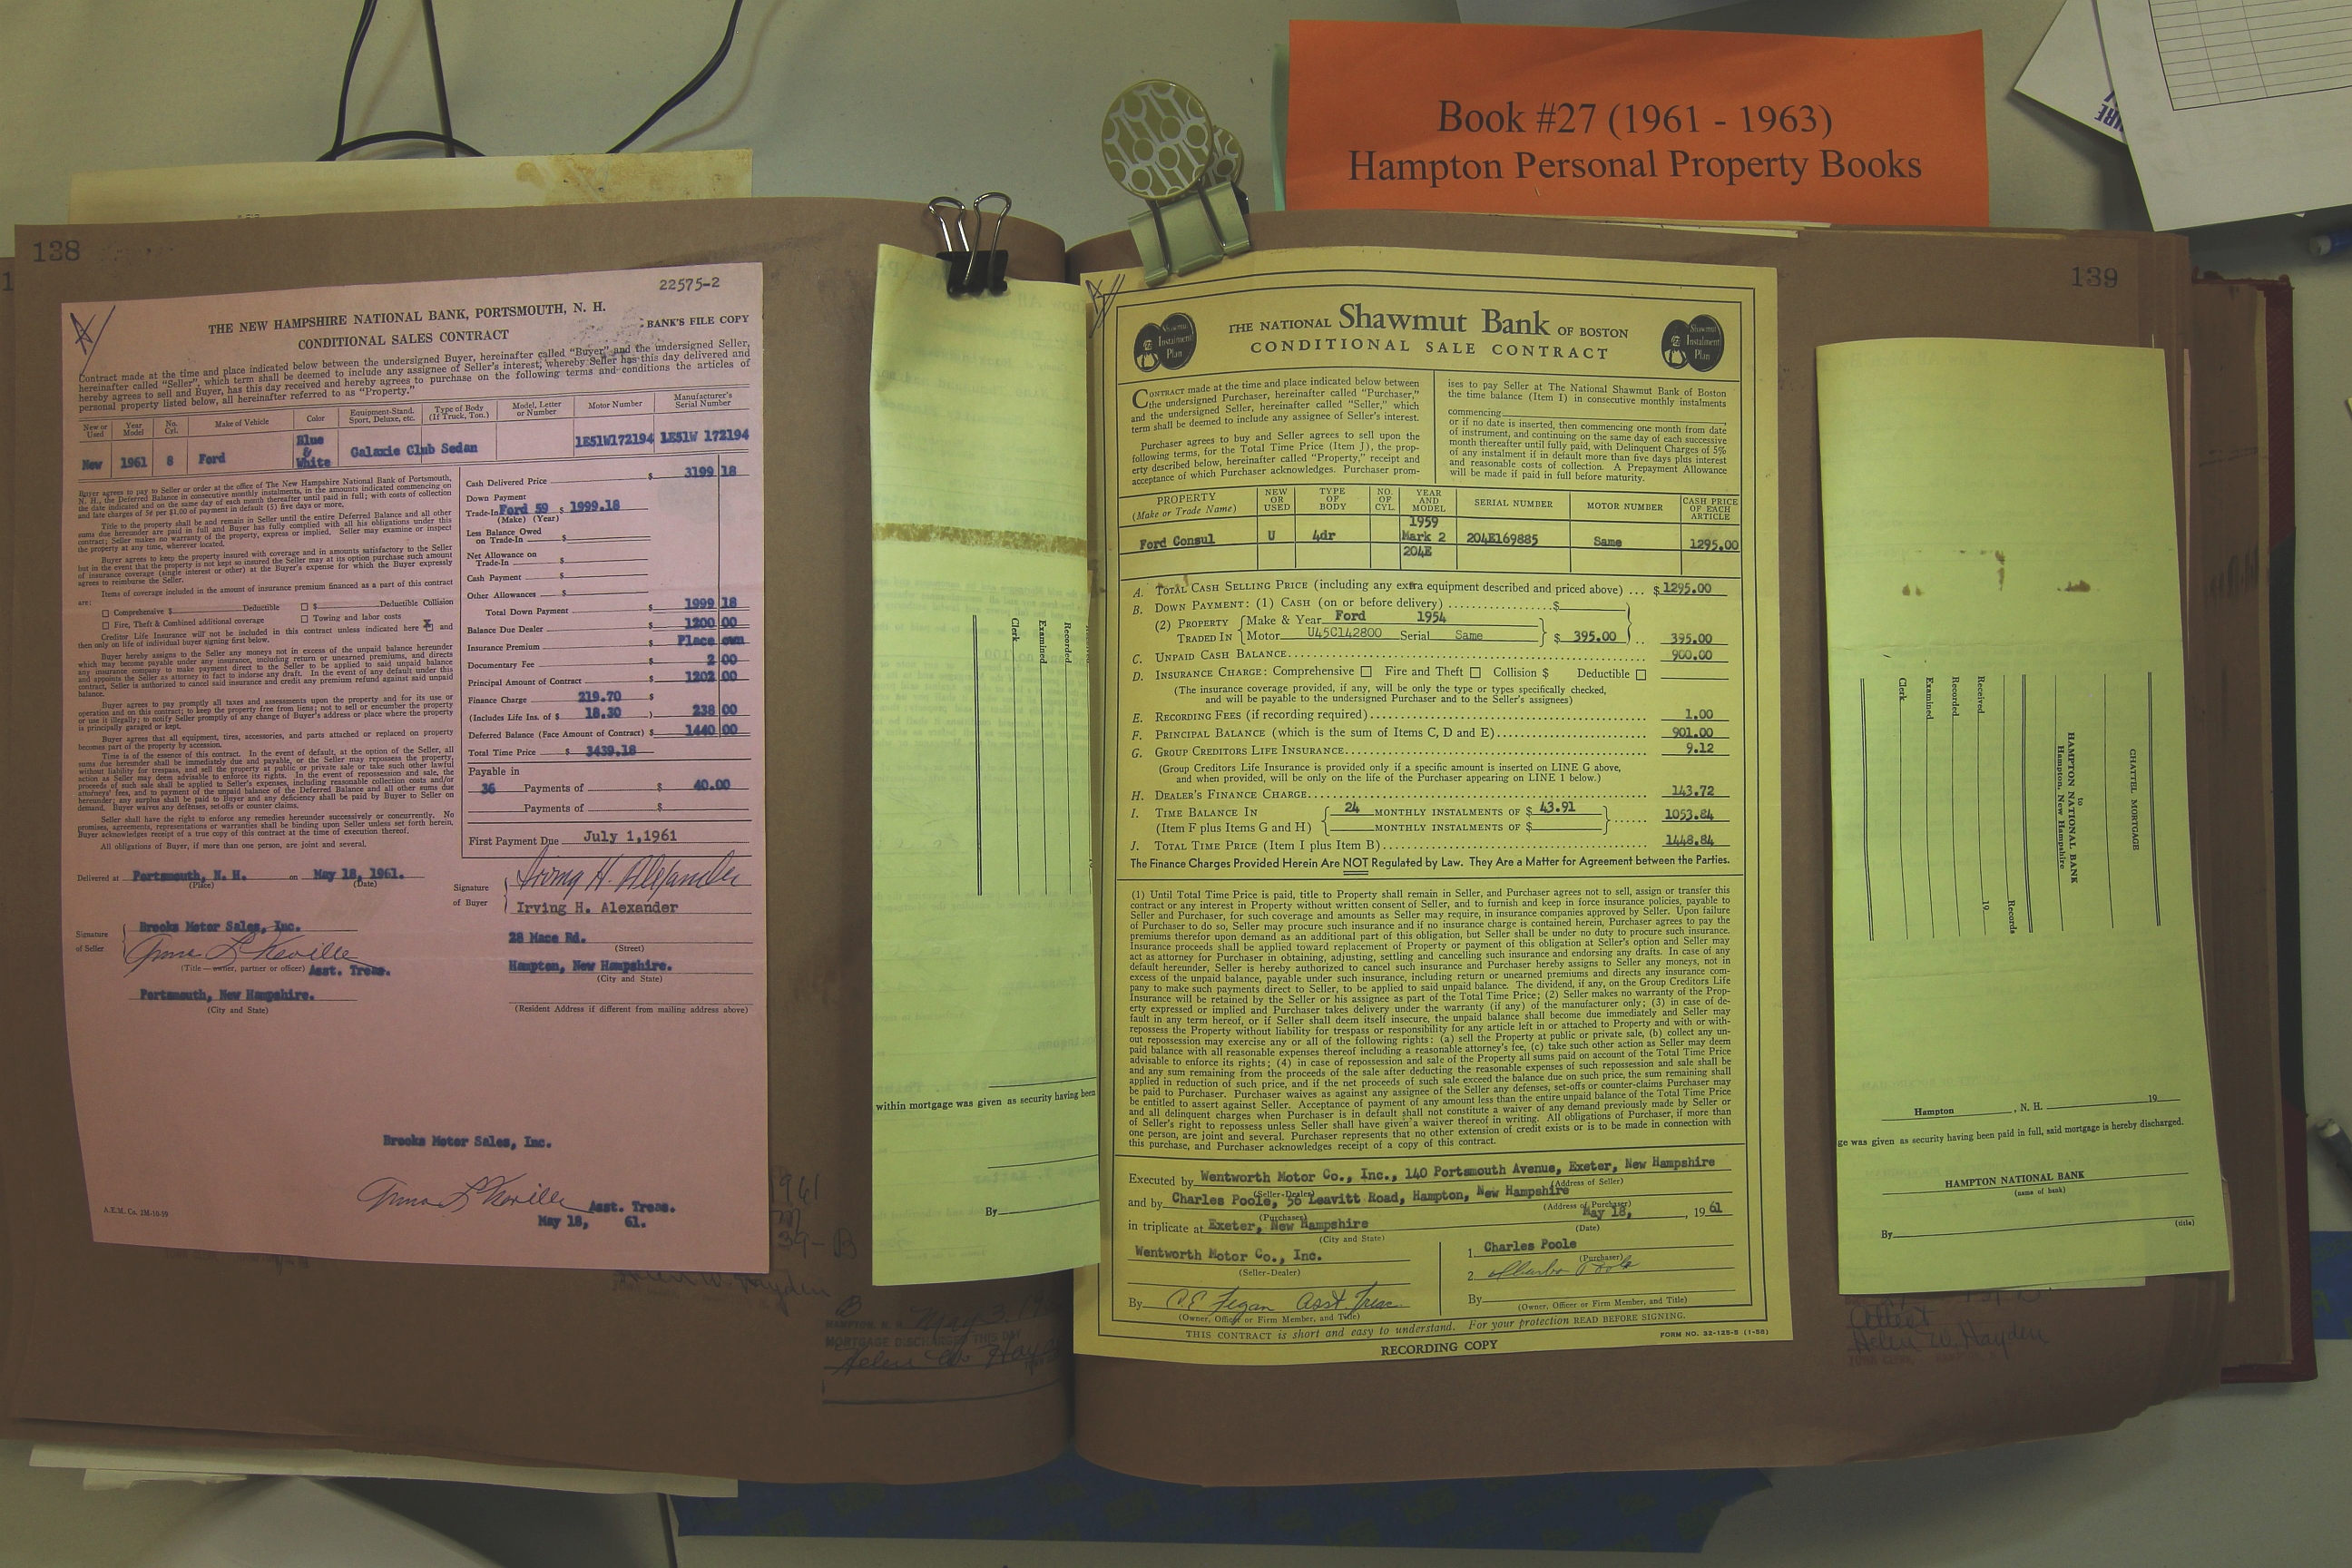 Book #27 (1961 - 1963)
Hampton Personal Property Books
138
22575-2
THE NEW HAMPSHIRE NATIONAL BANK, PORTSMOUTH, N. H.
BANK'S FILE COPY
CONDITIONAL SALES CONTRACT
Contract made at the time and place indicated below between the undersigned Buyer, hereinafter called "Buyer" and the undersigned Seller,
hereinafter called "Seller", which term shall be deemed to include any assignee of Seller's interest, whereby Seller has this day delivered and
hereby agrees to sell and Buyer, has this day received and hereby agrees to purchase on the following terms and conditions the articles of
personal property listed below, all hereinafter referred to as "Property."
New or Used Year Model No. Cyl. Make of Vehicle Color Equipment-Stand. Sport, Deluxe, etc. Type of Body (If Truck, Ton.) Model, Letter or Number Motor Number Manufacturer's Serial Number
New 1961 8 Ford Blue & White Galaxie Club Sedan 1E51W172194 1E51W 172194
Buyer agrees to pay to Seller or order at the office of The New Hampshire National Bank of Portsmouth,
N. H., the Deferred Balance in consecutive monthly instalments, in the amounts indicated commencing on
the date indicated and on the same day of each month thereafter until paid in full; with costs of collection
and late charges of 5¢ per $1.00 of payment in default (5) five days or more.
Title to the property shall be and remain in Seller until the entire Deferred Balance and all other
sums due hereunder are paid in full and Buyer has fully complied with all his obligations under this
contract; Seller makes no warranty of the property, express or implied. Seller may examine or inspect
the property at any time, wherever located.
Buyer agrees to keep the property insured with coverage and in amounts satisfactory to the Seller
but in the event that the property is not kept so insured the Seller may at its option purchase such amount
of insurance coverage (single interest or other) at the Buyer's expense for which the Buyer expressly
agrees to reimburse the Seller.
Items of coverage included in the amount of insurance premium financed as a part of this contract
are:
Comprehensive $ Deductible $ Deductible Collision
Fire, Theft & Combined additional coverage Towing and labor costs
Creditor Life Insurance will not be included in this contract unless indicated here X and
then only on life of individual buyer signing first below.
Buyer hereby assigns to the Seller any moneys not in excess of the unpaid balance hereunder
which may become payable under any insurance, including return or unearned premiums, and directs
any insurance company to make payment direct to the Seller to be applied to said unpaid balance
and appoints the Seller as attorney in fact to indorse any draft. In the event of any default under this
contract, Seller is authorized to cancel said insurance and credit any premium refund against said unpaid
balance.
Buyer agrees to pay promptly all taxes and assessments upon the property and for its use or
operation and on this contract; to keep the property free from liens; not to sell or encumber the property
or use it illegally; to notify Seller promptly of any change of Buyer's address or place where the property
is principally garaged or kept.
Buyer agrees that all equipment, tires, accessories, and parts attached or replaced on property
becomes part of the property by accession.
Time is of the essence of this contract. In the event of default, at the option of the Seller, all
sums due hereunder shall be immediately due and payable, or the Seller may repossess the property,
without liability for trespass, and sell the property at public or private sale or take such other lawful
action as Seller may deem advisable to enforce its rights. In the event of repossession and sale, the
proceeds of such sale shall be applied to Seller's expenses, including reasonable collection costs and/or
attorneys' fees, and to payment of the unpaid balance of the Deferred Balance and all other sums due
hereunder; any surplus shall be paid to Buyer and any deficiency shall be paid by Buyer to Seller on
demand. Buyer waives any defenses, set-offs or counter claims.
Seller shall have the right to enforce any remedies hereunder successively or concurrently. No
promises, agreements, representations or warranties shall be binding upon Seller unless set forth herein.
Buyer acknowledges receipt of a true copy of this contract at the time of execution thereof.
All obligations of Buyer, if more than one person, are joint and several.
Cash Delivered Price $ 3199 18
Down Payment
Trade-In Ford 59 $ 1999.18
(Make) (Year)
Less Balance Owed
on Trade-In $
Net Allowance on
Trade-In $
Cash Payment $
Other Allowances $
Total Down Payment $ 1999 18
Balance Due Dealer $ 1200 00
Insurance Premium $ Place own
Documentary Fee $ 2 00
Principal Amount of Contract $ 1202 00
Finance Charge 219.70 $
(Includes Life Ins. of $ 18.30 ) $ 238 00
Deferred Balance (Face Amount of Contract) $ 1440 00
Total Time Price $ 3439.18
Payable in
36 Payments of $ 40.00
Payments of $
First Payment Due July 1,1961
Delivered at Portsmouth, N. H. on May 18, 1961.
(Place) (Date)
Signature of Buyer Irving H. Alexander
Irving H. Alexander
28 Mace Rd.
(Street)
Hampton, New Hampshire.
(City and State)
(Resident Address if different from mailing address above)
Brooks Motor Sales, Inc.
Signature of Seller
(Title—owner, partner or officer) Asst. Treas.
Portsmouth, New Hampshire.
(City and State)
Brooks Motor Sales, Inc.
Asst. Treas.
May 18, 61.
A.E.M. Co. 2M-10-59
1961
39-B
Helen W. Hayden
B May 3, 19
HAMPTON, N. H.
MORTGAGE DISCHARGED THIS DAY
Helen W. Hay
Clerk
Examined
Recorded
within mortgage was given as security having been
By
139
THE NATIONAL Shawmut Bank OF BOSTON
CONDITIONAL SALE CONTRACT
Shawmut Instalment Plan
Shawmut Instalment Plan
CONTRACT made at the time and place indicated below between
the undersigned Purchaser, hereinafter called "Purchaser,"
and the undersigned Seller, hereinafter called "Seller," which
term shall be deemed to include any assignee of Seller's interest.
Purchaser agrees to buy and Seller agrees to sell upon the
following terms, for the Total Time Price (Item J), the prop-
erty described below, hereinafter called "Property," receipt and
acceptance of which Purchaser acknowledges. Purchaser prom-
ises to pay Seller at The National Shawmut Bank of Boston
the time balance (Item I) in consecutive monthly instalments
commencing
or if no date is inserted, then commencing one month from date
of instrument, and continuing on the same day of each successive
month thereafter until fully paid, with Delinquent Charges of 5%
of any instalment if in default more than five days plus interest
and reasonable costs of collection. A Prepayment Allowance
will be made if paid in full before maturity.
PROPERTY (Make or Trade Name) NEW OR USED TYPE OF BODY NO. OF CYL. YEAR AND MODEL SERIAL NUMBER MOTOR NUMBER CASH PRICE OF EACH ARTICLE
Ford Consul U 4dr 1959 Mark 2 204E 204E169885 Same 1295.00
A. TOTAL CASH SELLING PRICE (including any extra equipment described and priced above) ... $ 1295.00
B. DOWN PAYMENT: (1) CASH (on or before delivery) $
(2) PROPERTY TRADED IN Make & Year Ford 1954
Motor U45C142800 Serial Same $ 395.00 395.00
C. UNPAID CASH BALANCE 900.00
D. INSURANCE CHARGE: Comprehensive Fire and Theft Collision $ Deductible
(The insurance coverage provided, if any, will be only the type or types specifically checked,
and will be payable to the undersigned Purchaser and to the Seller's assignees)
E. RECORDING FEES (if recording required) 1.00
F. PRINCIPAL BALANCE (which is the sum of Items C, D and E) 901.00
G. GROUP CREDITORS LIFE INSURANCE 9.12
(Group Creditors Life Insurance is provided only if a specific amount is inserted on LINE G above,
and when provided, will be only on the life of the Purchaser appearing on LINE 1 below.)
H. DEALER'S FINANCE CHARGE 143.72
I. TIME BALANCE IN 24 MONTHLY INSTALMENTS OF $ 43.91
(Item F plus Items G and H) MONTHLY INSTALMENTS OF $ 1053.84
J. TOTAL TIME PRICE (Item I plus Item B) 1448.84
The Finance Charges Provided Herein Are NOT Regulated by Law. They Are a Matter for Agreement between the Parties.
(1) Until Total Time Price is paid, title to Property shall remain in Seller, and Purchaser agrees not to sell, assign or transfer this
contract or any interest in Property without written consent of Seller, and to furnish and keep in force insurance policies, payable to
Seller and Purchaser, for such coverage and amounts as Seller may require, in insurance companies approved by Seller. Upon failure
of Purchaser to do so, Seller may procure such insurance and if no insurance charge is contained herein, Purchaser agrees to pay the
premiums therefor upon demand as an additional part of this obligation, but Seller shall be under no duty to procure such insurance.
Insurance proceeds shall be applied toward replacement of Property or payment of this obligation at Seller's option and Seller may
act as attorney for Purchaser in obtaining, adjusting, settling and cancelling such insurance and endorsing any drafts. In case of any
default hereunder, Seller is hereby authorized to cancel such insurance and Purchaser hereby assigns to Seller any moneys, not in
excess of the unpaid balance, payable under such insurance, including return or unearned premiums and directs any insurance com-
pany to make such payments direct to Seller, to be applied to said unpaid balance. The dividend, if any, on the Group Creditors Life
Insurance will be retained by the Seller or his assignee as part of the Total Time Price; (2) Seller makes no warranty of the Prop-
erty expressed or implied and Purchaser takes delivery under the warranty (if any) of the manufacturer only; (3) in case of de-
fault in any term hereof, or if Seller shall deem itself insecure, the unpaid balance shall become due immediately and Seller may
repossess the Property without liability for trespass or responsibility for any article left in or attached to Property and with or with-
out repossession may exercise any or all of the following rights: (a) sell the Property at public or private sale, (b) collect any un-
paid balance with all reasonable expenses thereof including a reasonable attorney's fee, (c) take such other action as Seller may deem
advisable to enforce its rights; (4) in case of repossession and sale of the Property all sums paid on account of the Total Time Price
and any sum remaining from the proceeds of the sale after deducting the reasonable expenses of such repossession and sale shall be
applied in reduction of such price, and if the net proceeds of such sale exceed the balance due on such price, the sum remaining shall
be paid to Purchaser. Purchaser waives as against any assignee of the Seller any defenses, set-offs or counter-claims Purchaser may
be entitled to assert against Seller. Acceptance of payment of any amount less than the entire unpaid balance of the Total Time Price
and all delinquent charges when Purchaser is in default shall not constitute a waiver of any demand previously made by Seller or
of Seller's right to repossess unless Seller shall have given a waiver thereof in writing. All obligations of Purchaser, if more than
one person, are joint and several. Purchaser represents that no other extension of credit exists or is to be made in connection with
this purchase, and Purchaser acknowledges receipt of a copy of this contract.
Executed by Wentworth Motor Co., Inc., 140 Portsmouth Avenue, Exeter, New Hampshire
(Seller-Dealer) (Address of Seller)
and by Charles Poole, 56 Leavitt Road, Hampton, New Hampshire
(Purchaser) (Address of Purchaser)
in triplicate at Exeter, New Hampshire May 18, , 19 61
(City and State) (Date)
Wentworth Motor Co., Inc.
(Seller-Dealer)
1. Charles Poole
(Purchaser)
2. Charles Poole
By C.E. Fegan Asst Treas.
(Owner, Officer or Firm Member, and Title)
By
(Owner, Officer or Firm Member, and Title)
THIS CONTRACT is short and easy to understand. For your protection READ BEFORE SIGNING.
FORM NO. 32-125-B (1-56)
RECORDING COPY
CHATTEL MORTGAGE
to
HAMPTON NATIONAL BANK
Hampton, New Hampshire
Received
19
Records
Recorded
Examined
Clerk
Hampton , N. H. 19
ge was given as security having been paid in full, said mortgage is hereby discharged.
HAMPTON NATIONAL BANK
(name of bank)
By
(title)
Attest
Helen W. Hayden